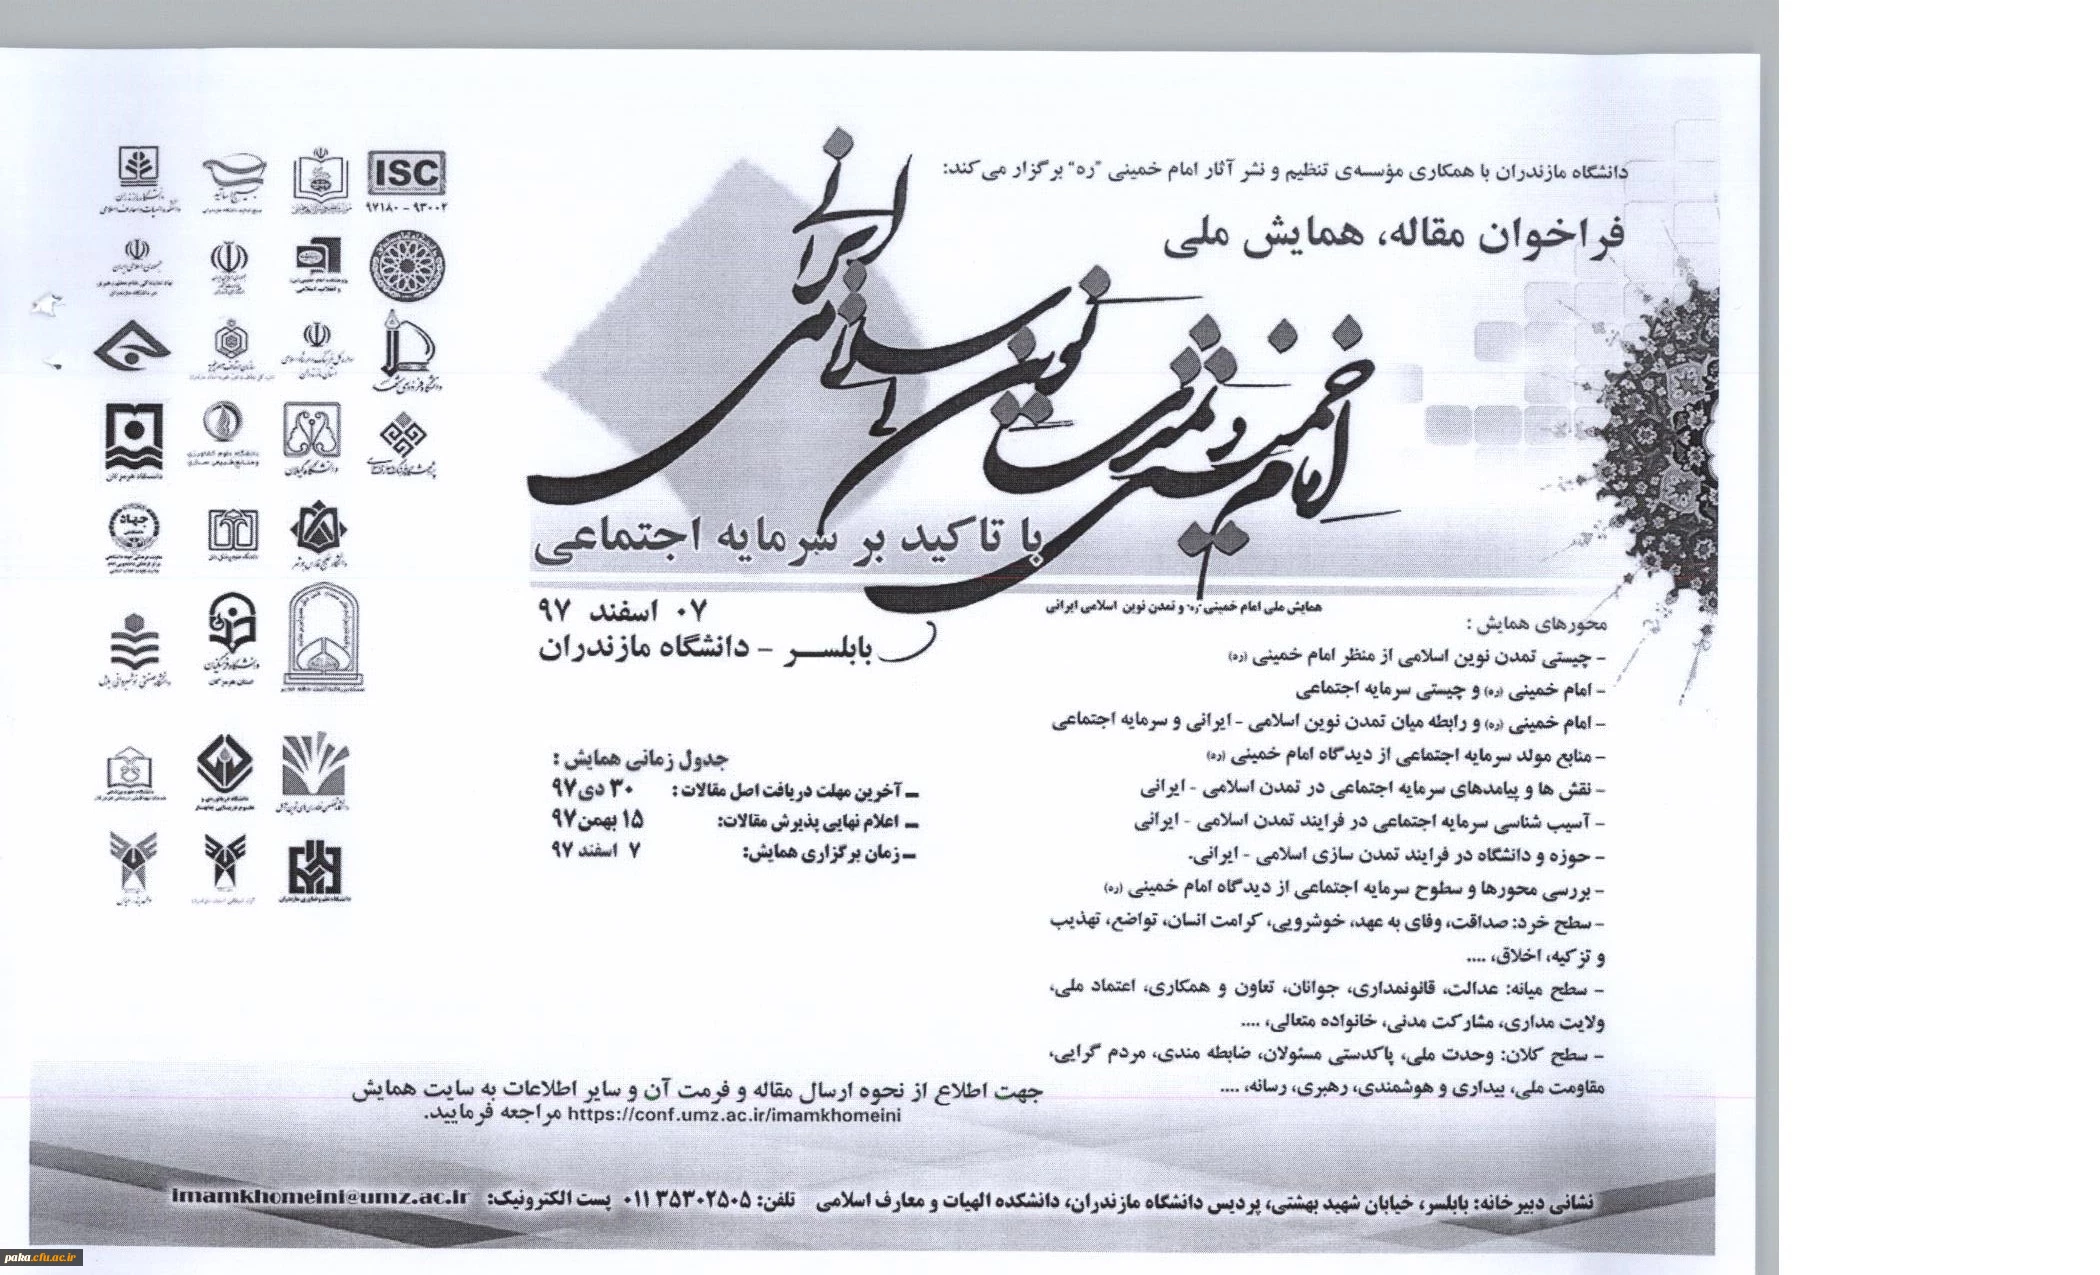 دانشگاه مازندران با همکاری مؤسسه‌ی تنظیم و نشر آثار امام خمینی "ره" برگزار می‌کند:
فراخوان مقاله، همایش ملی
امام خمینی و تمدن نوین اسلامی ایرانی
با تاکید بر سرمایه اجتماعی
همایش ملی امام خمینی "ره" و تمدن نوین اسلامی ایرانی
۰۷ اسفند ۹۷
بابلسر - دانشگاه مازندران
محورهای همایش :
- چیستی تمدن نوین اسلامی از منظر امام خمینی (ره)
- امام خمینی (ره) و چیستی سرمایه اجتماعی
- امام خمینی (ره) و رابطه میان تمدن نوین اسلامی - ایرانی و سرمایه اجتماعی
- منابع مولد سرمایه اجتماعی از دیدگاه امام خمینی (ره)
- نقش ها و پیامدهای سرمایه اجتماعی در تمدن اسلامی - ایرانی
- آسیب شناسی سرمایه اجتماعی در فرایند تمدن اسلامی - ایرانی
- حوزه و دانشگاه در فرایند تمدن سازی اسلامی - ایرانی.
- بررسی محورها و سطوح سرمایه اجتماعی از دیدگاه امام خمینی (ره)
- سطح خرد: صداقت، وفای به عهد، خوشرویی، کرامت انسان، تواضع، تهذیب
و تزکیه، اخلاق، ....
- سطح میانه: عدالت، قانونمداری، جوانان، تعاون و همکاری، اعتماد ملی،
ولایت مداری، مشارکت مدنی، خانواده متعالی، ....
- سطح کلان: وحدت ملی، پاکدستی مسئولان، ضابطه مندی، مردم گرایی،
مقاومت ملی، بیداری و هوشمندی، رهبری، رسانه، ....
جدول زمانی همایش :
- آخرین مهلت دریافت اصل مقالات : ۳۰ دی ۹۷
- اعلام نهایی پذیرش مقالات: ۱۵ بهمن ۹۷
- زمان برگزاری همایش: ۷ اسفند ۹۷
ISC
۹۷۱۸۰ - ۹۳۰۰۲
دانشگاه گیلان
دانشگاه هرمزگان
جهاد
جهت اطلاع از نحوه ارسال مقاله و فرمت آن و سایر اطلاعات به سایت همایش
https://conf.umz.ac.ir/imamkhomeini مراجعه فرمایید.
نشانی دبیرخانه: بابلسر، خیابان شهید بهشتی، پردیس دانشگاه مازندران، دانشکده الهیات و معارف اسلامی تلفن: ۰۱۱۳۵۳۰۲۵۰۵ پست الکترونیک: imamkhomeini@umz.ac.ir
paka.cfu.ac.ir